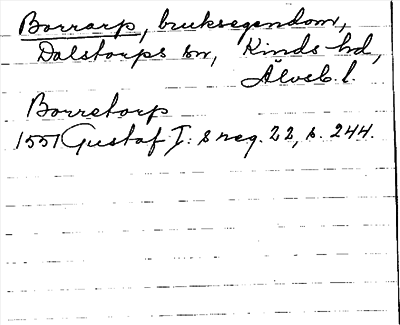 Borrarp, bruksegendom,
Dalstorps sn, Kinds hd,
Älvsb. l.
Borretorp
1551 Gustaf I:s reg. 22, s. 244.